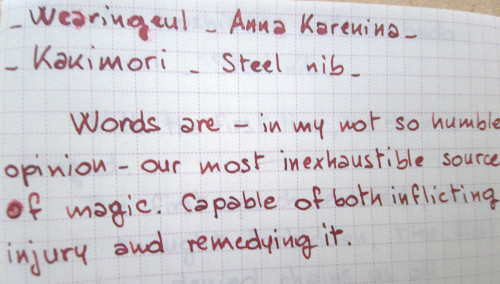 - Wearingeul - Anna Karenina -
- Kakimori - Steel nib -
Words are - in my not so humble
opinion - our most inexhaustible source
of magic. Capable of both inflicting
injury and remedying it.